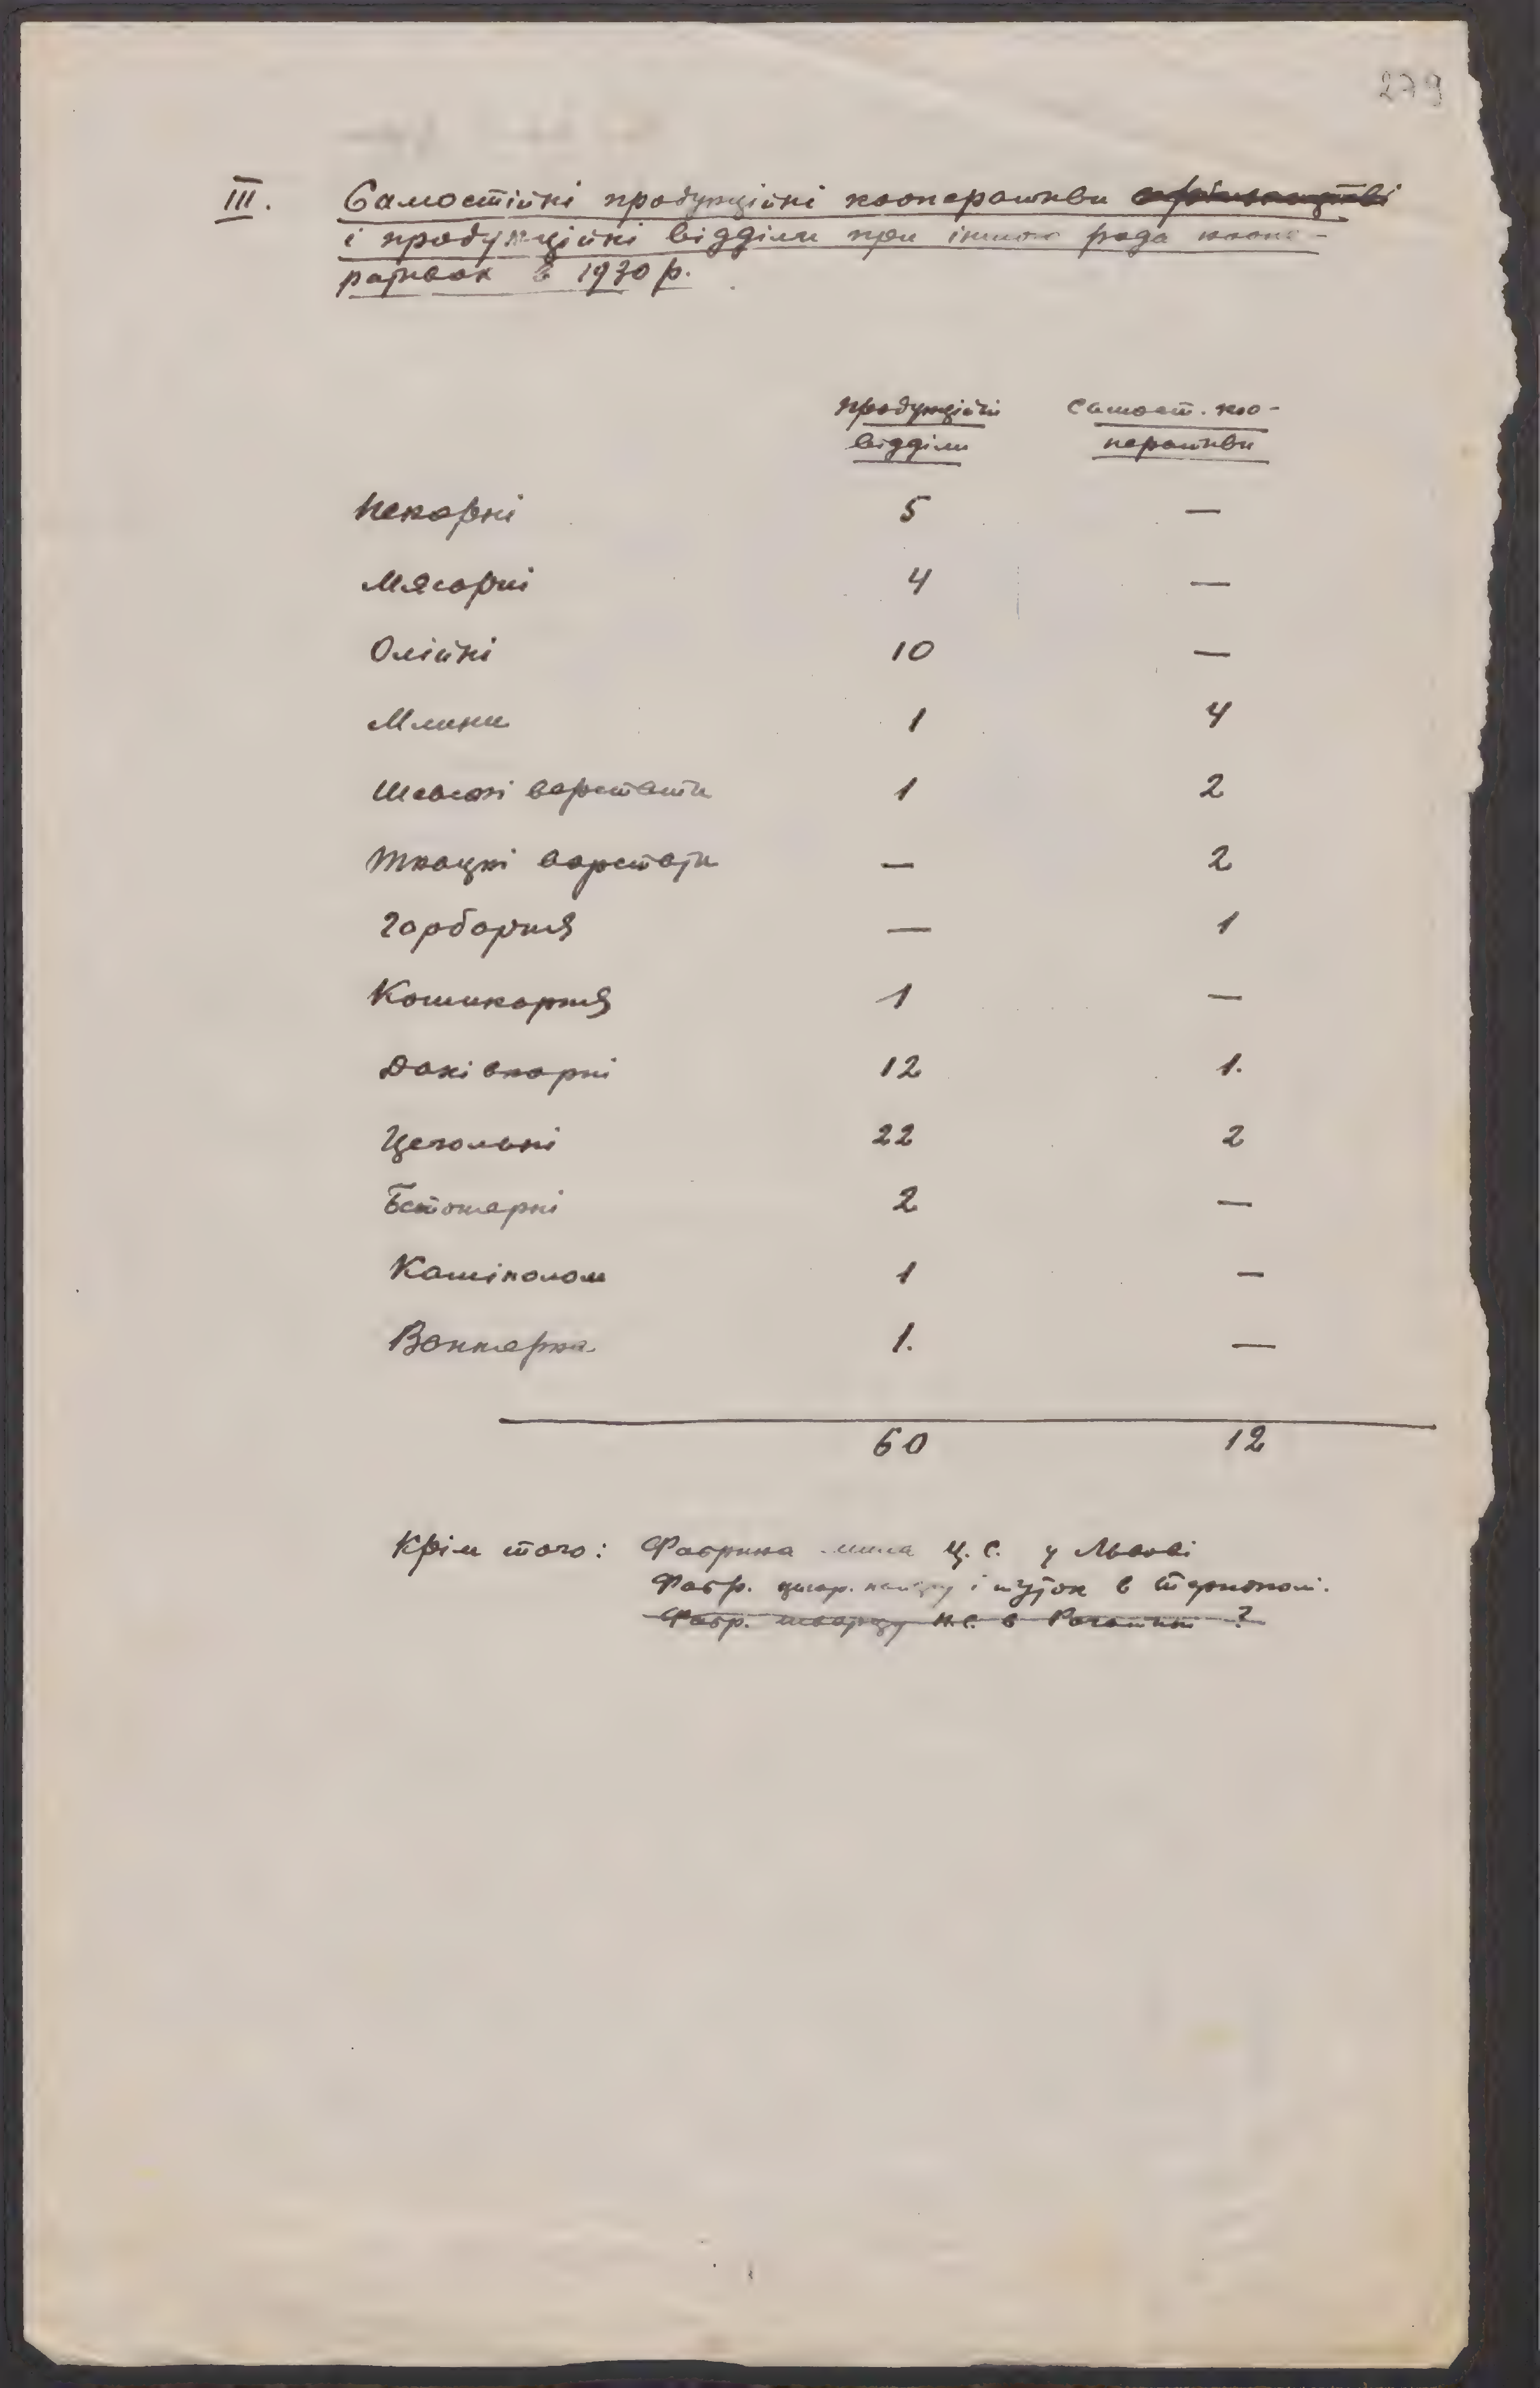 279
III. Самостійні продукційні кооперативи
і продукційні відділи при іншого рода коопе-
ративах в 1930 р.
продукційні самост. коо-
відділи перативи
Пекарні 5 —
Мясарні 4 —
Олійні 10 —
Млини 1 4
Шевські варстати 1 2
Ткацкі варстати — 2
Гарбарня — 1
Кошикарня 1 —
Дахівкарні 12 1.
Цегольні 22 2
Бетонярні 2 —
Камінолом 1 —
Вапнярка 1. —
60 12
Крім того: Фабрика мила Ц. С. у Львові
Фабр. цигар. паперу і туток в Тернополі.
Фабр. П.С. в Рогатині ?